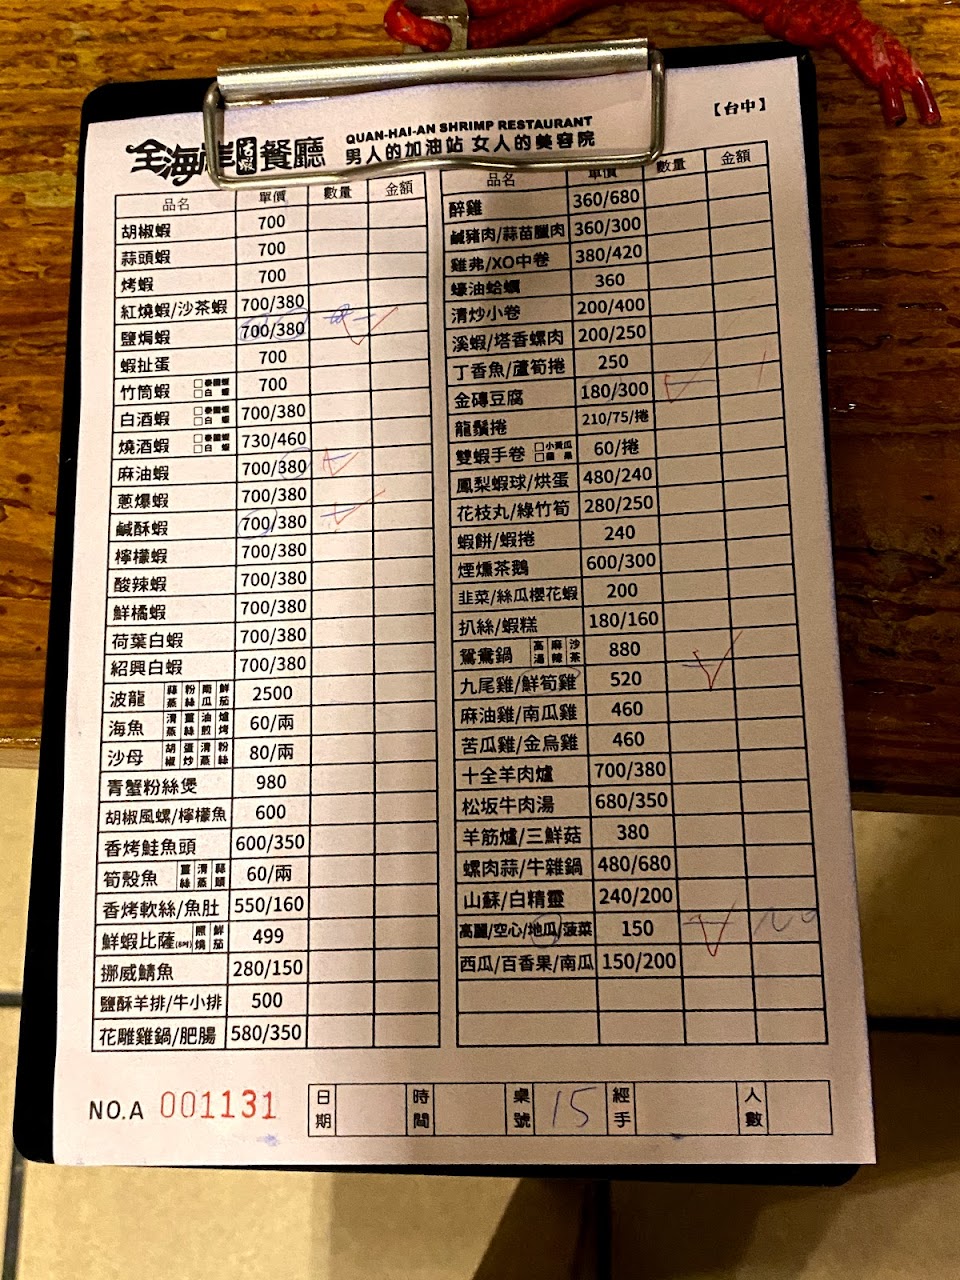 【台中】
全海岸 活蝦 餐廳
QUAN-HAI-AN SHRIMP RESTAURANT
男人的加油站 女人的美容院
品名 單價 數量 金額
胡椒蝦 700
蒜頭蝦 700
烤蝦 700
紅燒蝦/沙茶蝦 700/380
鹽焗蝦 700/380
蝦扯蛋 700
竹筒蝦 □泰國蝦 □白蝦 700
白酒蝦 □泰國蝦 □白蝦 700/380
燒酒蝦 □泰國蝦 □白蝦 730/460
麻油蝦 700/380
蔥爆蝦 700/380
鹹酥蝦 700/380
檸檬蝦 700/380
酸辣蝦 700/380
鮮橘蝦 700/380
荷葉白蝦 700/380
紹興白蝦 700/380
波龍 蒜蒸 粉絲 南瓜 鮮茄 2500
海魚 清蒸 薑絲 油煎 爐烤 60/兩
沙母 胡椒 蛋炒 清蒸 粉絲 80/兩
青蟹粉絲煲 980
胡椒風螺/檸檬魚 600
香烤鮭魚頭 600/350
筍殼魚 薑絲 清蒸 蒜頭 60/兩
香烤軟絲/魚肚 550/160
鮮蝦比薩 照燒 鮮茄 499
挪威鯖魚 280/150
鹽酥羊排/牛小排 500
花雕雞鍋/肥腸 580/350
品名 單價 數量 金額
醉雞 360/680
鹹豬肉/蒜苗臘肉 360/300
雞弗/XO中卷 380/420
蠔油蛤蠣 360
清炒小卷 200/400
溪蝦/塔香螺肉 200/250
丁香魚/蘆筍捲 250
金磚豆腐 180/300
龍鬚捲 210/75/捲
雙蝦手卷 □小黃瓜 □蘋果 60/捲
鳳梨蝦球/烘蛋 480/240
花枝丸/綠竹筍 280/250
蝦餅/蝦捲 240
煙燻茶鵝 600/300
韭菜/絲瓜櫻花蝦 200
扒絲/蝦糕 180/160
鴛鴦鍋 高湯 麻辣 沙茶 880
九尾雞/鮮筍雞 520
麻油雞/南瓜雞 460
苦瓜雞/金烏雞 460
十全羊肉爐 700/380
松坂牛肉湯 680/350
羊筋爐/三鮮菇 380
螺肉蒜/牛雜鍋 480/680
山蘇/白精靈 240/200
高麗/空心/地瓜/菠菜 150
西瓜/百香果/南瓜 150/200
NO.A 001131 日期 時間 桌號 15 經手 人數